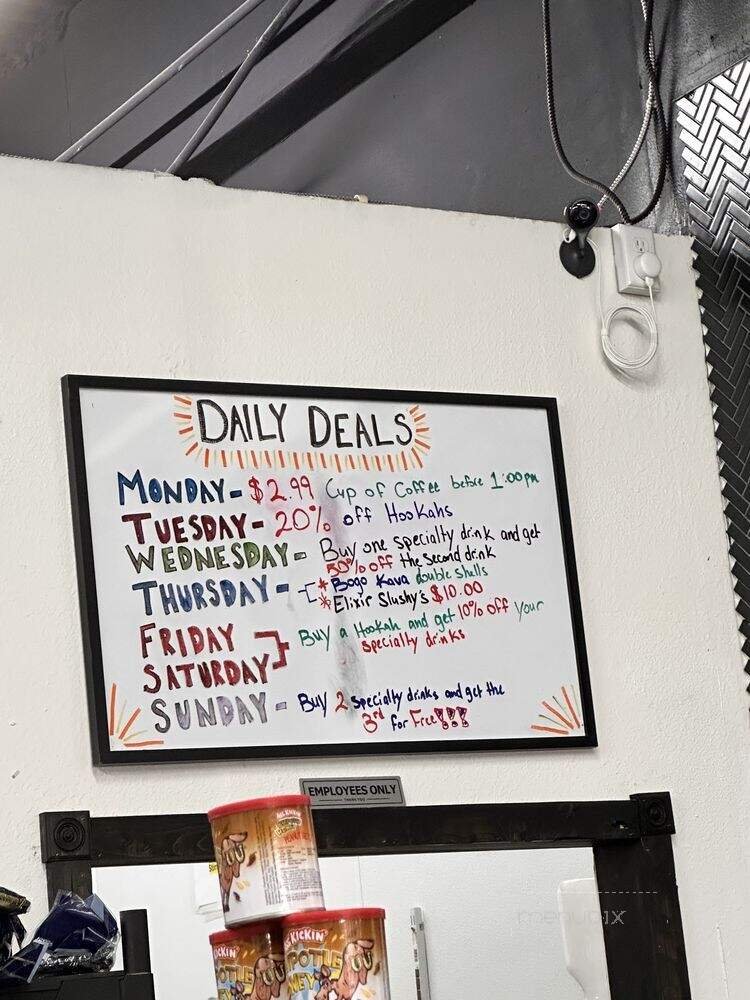 DAILY DEALS
MONDAY - $2.99 Cup of Coffee before 1:00pm
TUESDAY - 20% off Hookahs
WEDNESDAY - Buy one specialty drink and get
50% off the second drink
THURSDAY - * Bogo Kava double shells
* Elixir Slushy's $10.00
FRIDAY
SATURDAY
Buy a Hookah and get 10% off your
specialty drinks
SUNDAY - Buy 2 specialty drinks and get the
3rd for Free!!!
EMPLOYEES ONLY
THANK YOU
KICKIN'
menupix